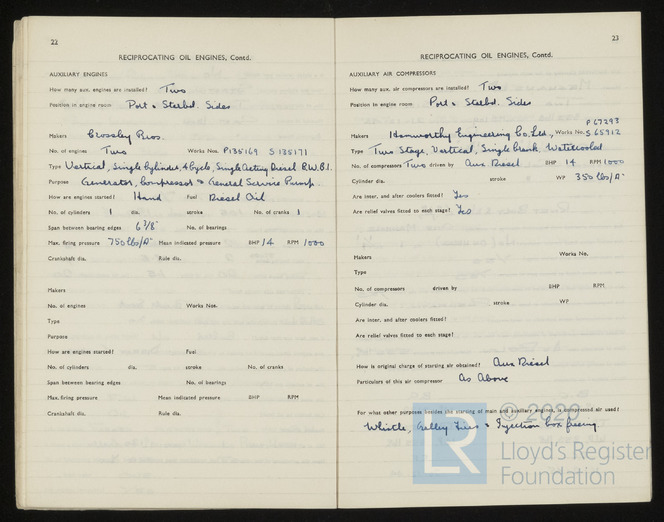 22
RECIPROCATING OIL ENGINES, Contd.
AUXILIARY ENGINES
How many aux. engines are installed? Two
Position in engine room Port & Starbd. Sides
Makers Crossley Bros.
No. of engines Two Works Nos. P135169 S.135171
Type Vertical, Single Cylinder, 4 Cycle, Single Acting Diesel R.W.B.1.
Purpose Generator, Compressor & General Service Pump.
How are engines started? Hand Fuel Diesel Oil
No. of cylinders 1 dia. stroke No. of cranks 1
Span between bearing edges 6 7/8" No. of bearings
Max. firing pressure 750 lbs/□" Mean indicated pressure BHP 14 RPM 1000
Crankshaft dia. Rule dia.
Makers
No. of engines Works Nos.
Type
Purpose
How are engines started? Fuel
No. of cylinders dia. stroke No. of cranks
Span between bearing edges No. of bearings
Max. firing pressure Mean indicated pressure BHP RPM
Crankshaft dia. Rule dia.
23
RECIPROCATING OIL ENGINES, Contd.
AUXILIARY AIR COMPRESSORS
How many aux. air compressors are installed? Two
Position in engine room Port & Starbd. Sides
P 67293
Makers Hamworthy Engineering Co. Ltd., Works No. S 65912
Type Two Stage, Vertical, Single Crank, Watercooled
No. of compressors Two driven by Aux. Diesel BHP 14 RPM 1000
Cylinder dia. stroke WP 350 lbs/□"
Are inter. and after coolers fitted? Yes
Are relief valves fitted to each stage? Yes
Makers Works No.
Type
No. of compressors driven by BHP RPM
Cylinder dia. stroke WP
Are inter. and after coolers fitted?
Are relief valves fitted to each stage?
How is original charge of starting air obtained? Aux Diesel
Particulars of this air compressor As Above
For what other purposes besides the starting of main and auxiliary engines, is compressed air used?
Whistle, Galley Fires & Injection box freeing.
© 2020
LR
Lloyd's Register
Foundation